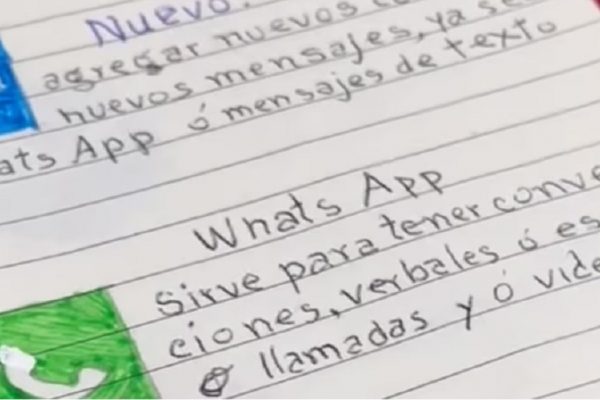 Nuevo.
agregar nuevos
nuevos mensajes, ya
ats App ó mensajes de texto
Whats App
Sirve para tener conve
ciones, verbales ó es
llamadas y ó vide